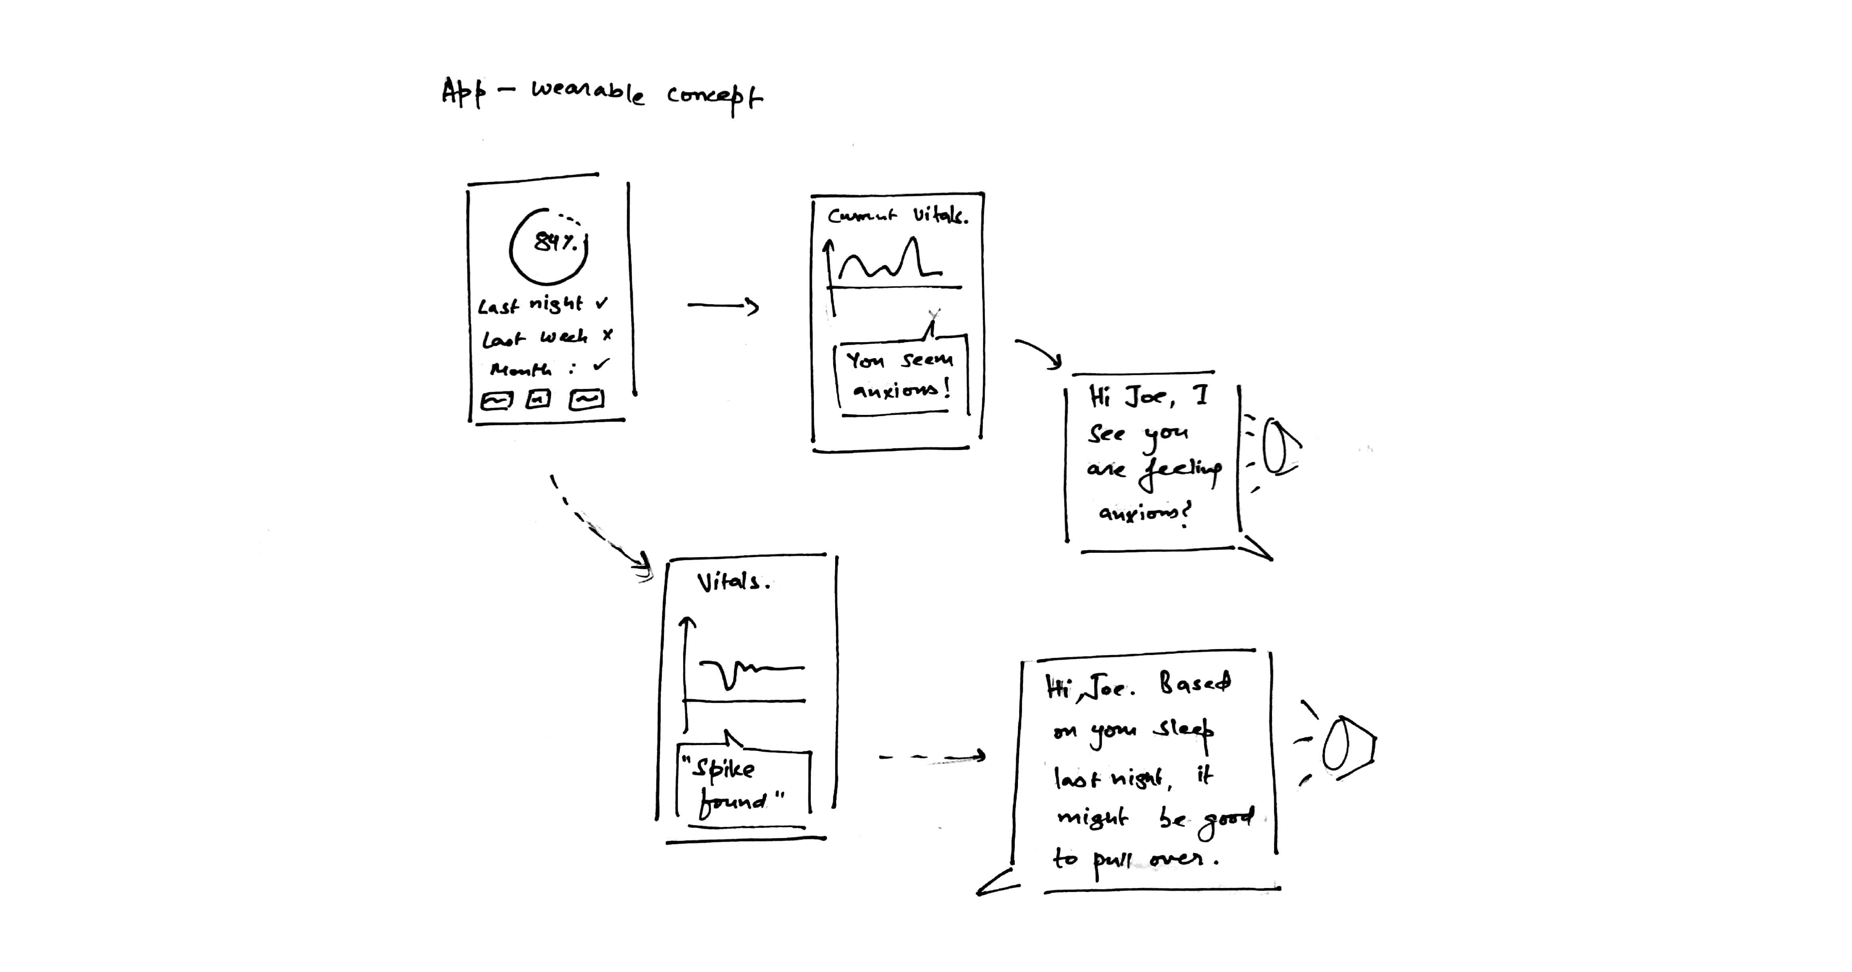 App - wearable concept
84%
Last night ✓
Last week x
Month : ✓
Current Vitals.
You seem
anxious!
Hi Joe, I
see you
are feeling
anxious?
Vitals.
"Spike
found"
Hi, Joe. Based
on your sleep
last night, it
might be good
to pull over.